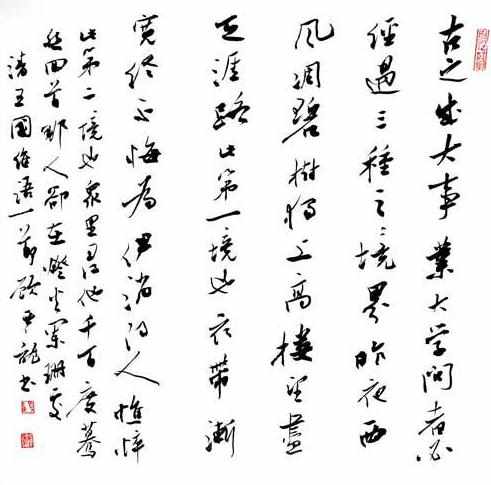 古之成大事業大学问者必
經過三種之境界昨夜西
风凋碧樹獨上高樓望盡
天涯路此第一境也衣帶漸
寬終不悔為伊消得人憔悴
此第二境也衆里尋他千百度驀
然回首那人卻在燈火闌珊處
清王國維語一節顾龍书